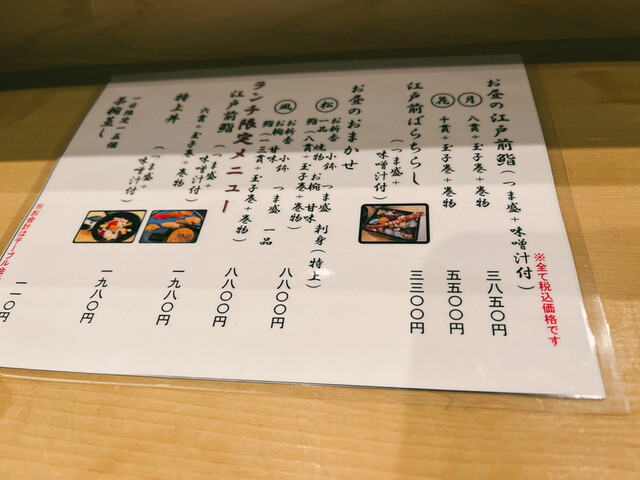 お昼の江戸前鮨(つま盛+味噌汁付)
※全て税込価格です
月 八貫+玉子巻+巻物 三八五〇円
花 十貫+玉子巻+巻物 五五〇〇円
江戸前ばらちらし
(つま盛+味噌汁付)
三三〇〇円
お昼のおまかせ
松 お新香 小鉢 つま盛 刺身(特上)
一品 焼物 お椀 甘味
鮨(八貫+玉子巻+巻物) 八八〇〇円
風 お新香 小鉢 つま盛 一品
お椀 甘味
鮨(一三貫+玉子巻+巻物) 八八〇〇円
ランチ限定メニュー
江戸前鮨
六貫+玉子巻+巻物
(つま盛+味噌汁付)
一九八〇円
特上丼
(つま盛+味噌汁付)
一九八〇円
一日限定一五個
茶椀蒸し
一一〇円
※お会計はテーブル会